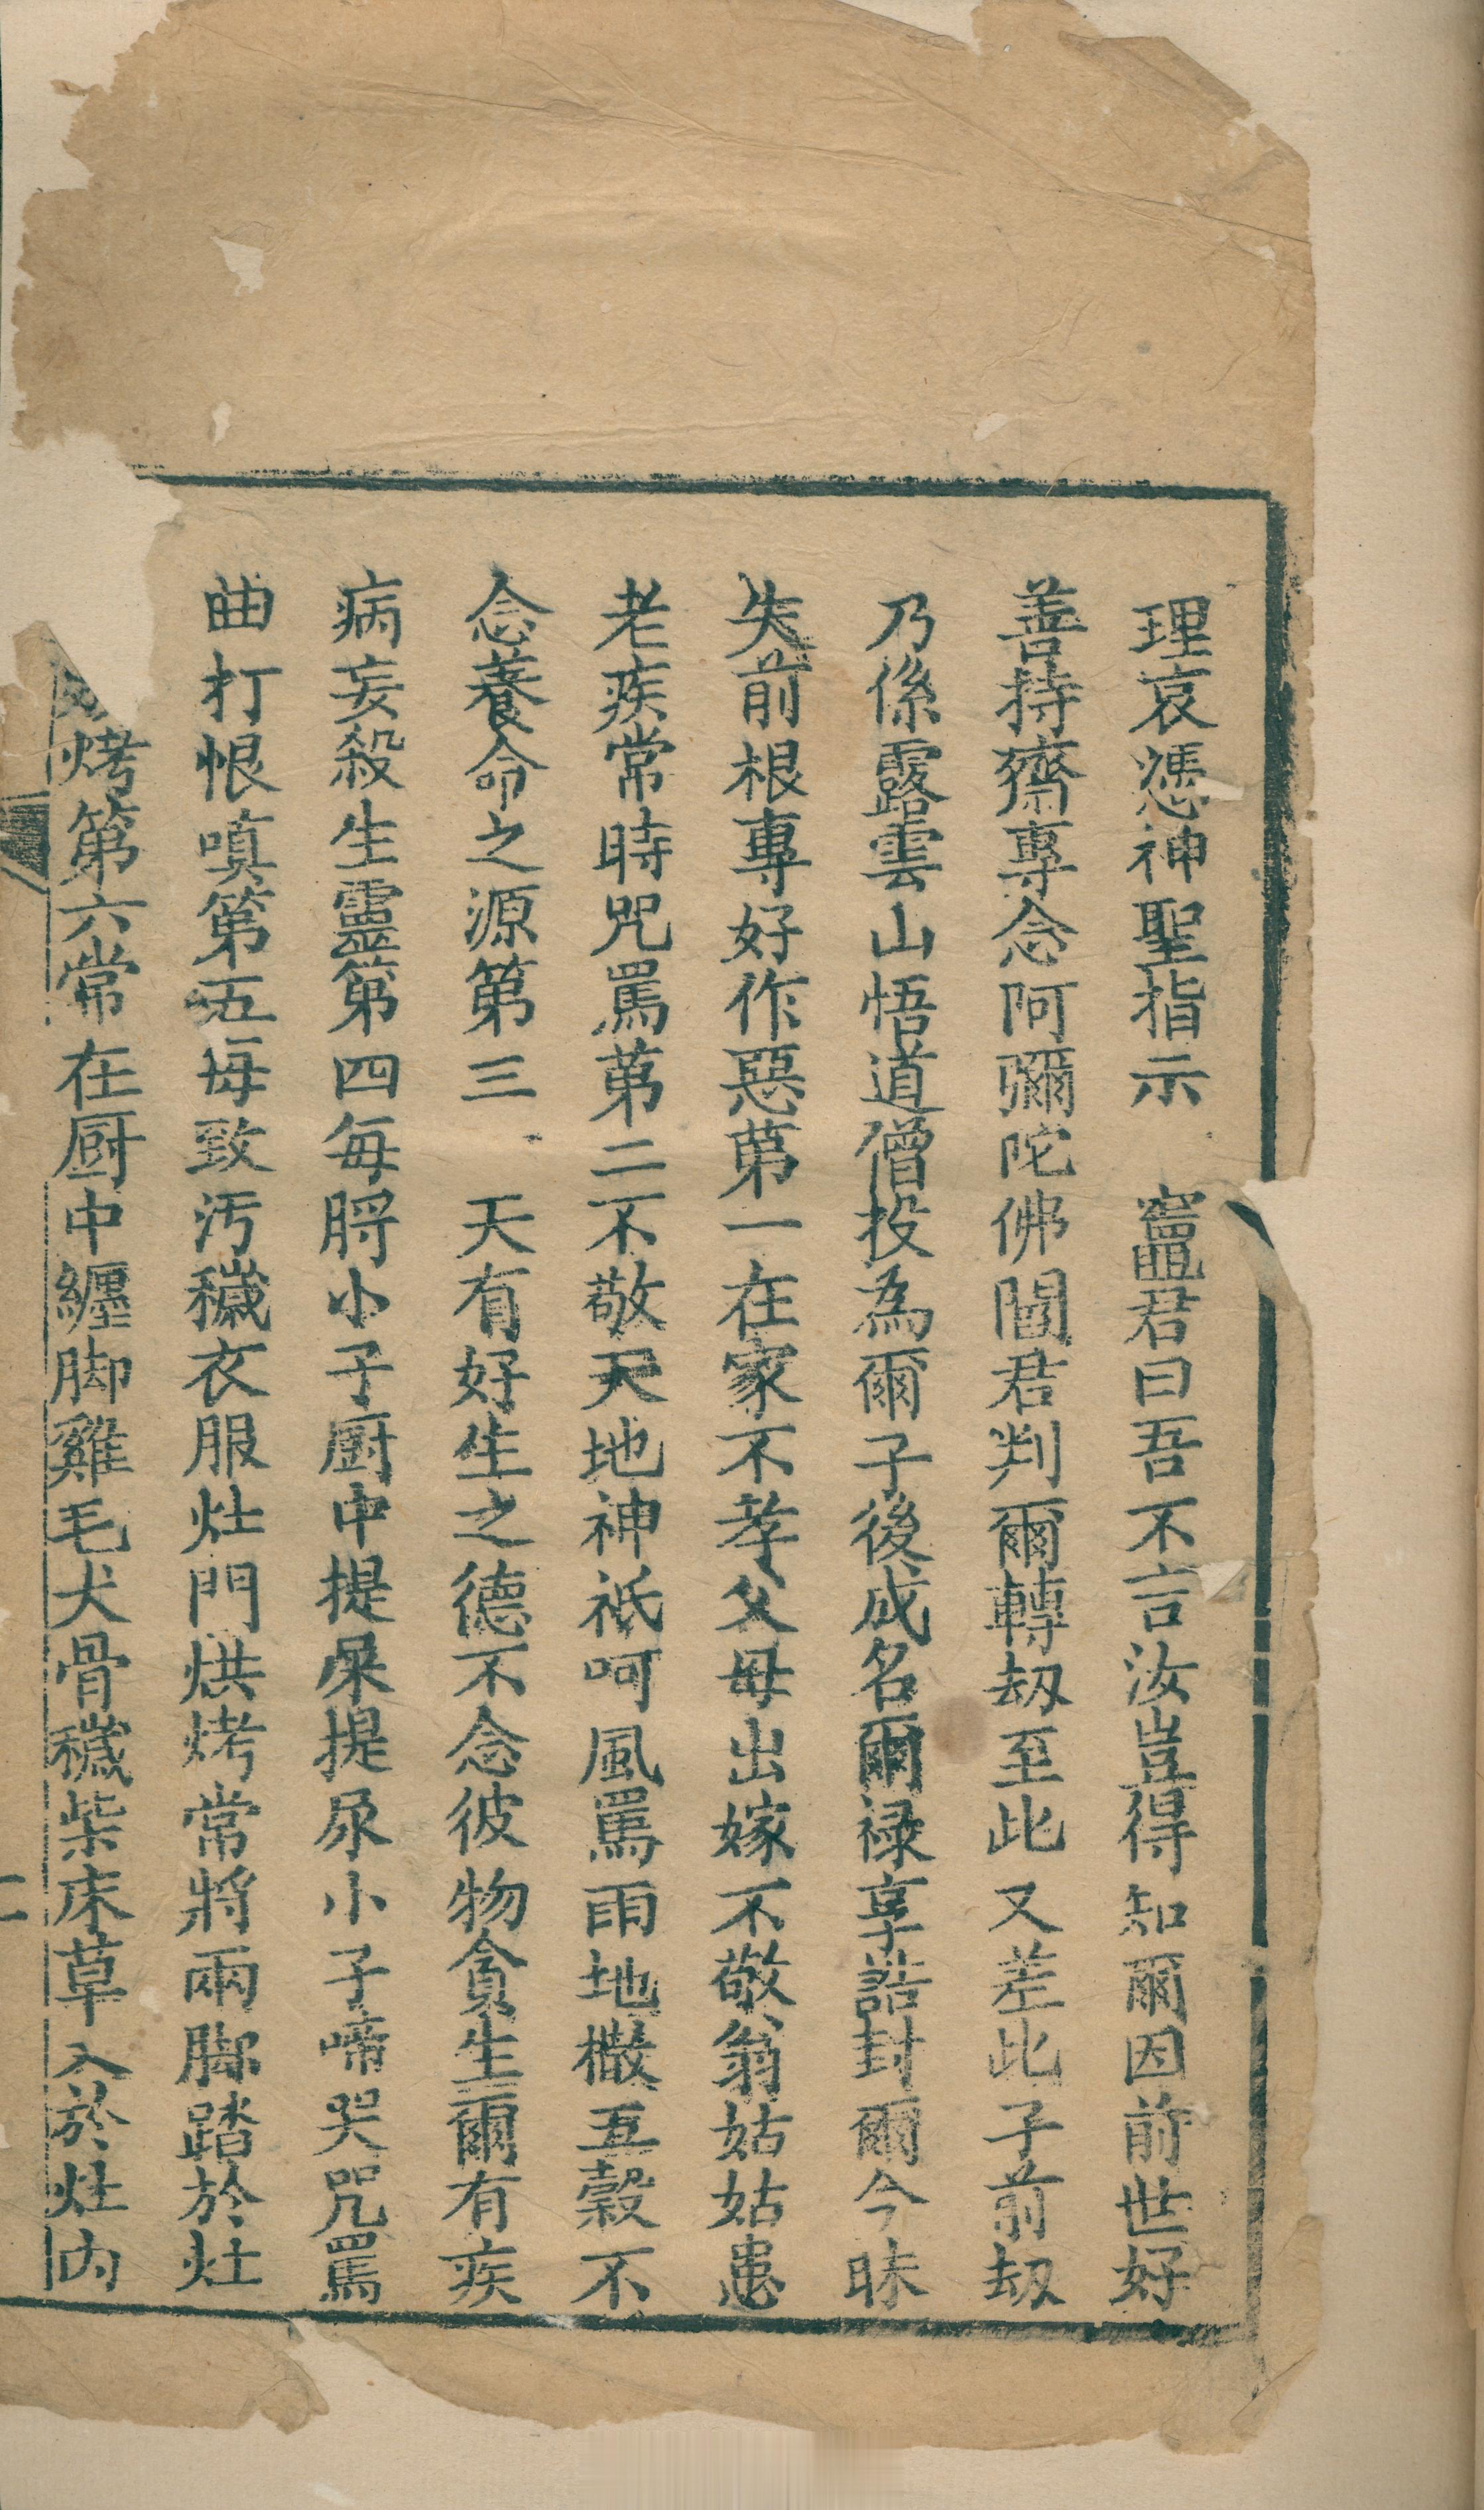 理哀慿神聖指示　竈君曰吾不言汝豈得知爾因前世好
善持齋專念阿彌陀佛閻君判爾轉刼至此又差此子前刼
乃係露雲山悟道僧投為爾子後成名爾禄享誥封爾今昧
失前根專好作惡苐一在家不孝父母出嫁不敬翁姑姑患
老疾常時咒罵苐二不敬天地神祇呵風罵雨地撒五穀不
念養命之源第三　天有好生之德不念彼物貪生爾有疾
病妄殺生靈第四每將小子厨中提屎提尿小子啼哭咒罵
曲打恨嗔第五每致汚穢衣服灶門烘烤常將兩脚踏於灶
烤第六常在厨中纏脚雞毛犬骨穢柴床草入於灶内
二